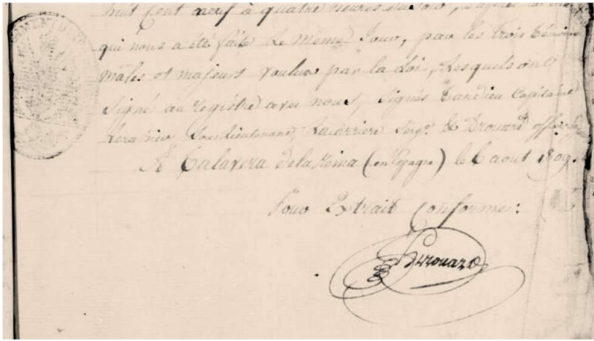 huit Cent neuf à quatre heures du soir, d'après la
qui nous a été faite le même Jour, par les trois témoins
mâles et majeurs voulus par la Loi, Lesquels ont
Signé au registre avec nous, Signés Capitaine
Souslieutenant Serg.t & Drouard offier
A Talavera de la Reina (en Espagne) le 6 aout 1809.
Pour Extrait Conforme:
Drouard